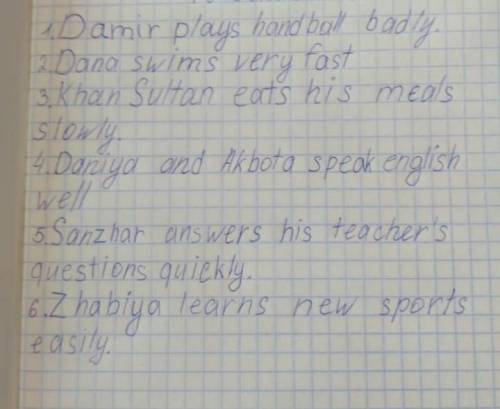 1. Damir plays handball badly.
2. Dana swims very fast
3. Khan Sultan eats his meals
slowly.
4. Daniya and Akbota speak english
well
5. Sanzhar answers his teacher's
questions quickly.
6. Zhabiya learns new sports
easily.